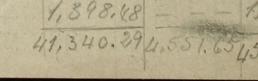 1,898.48 - - -
41,340.29 4,551.65 45